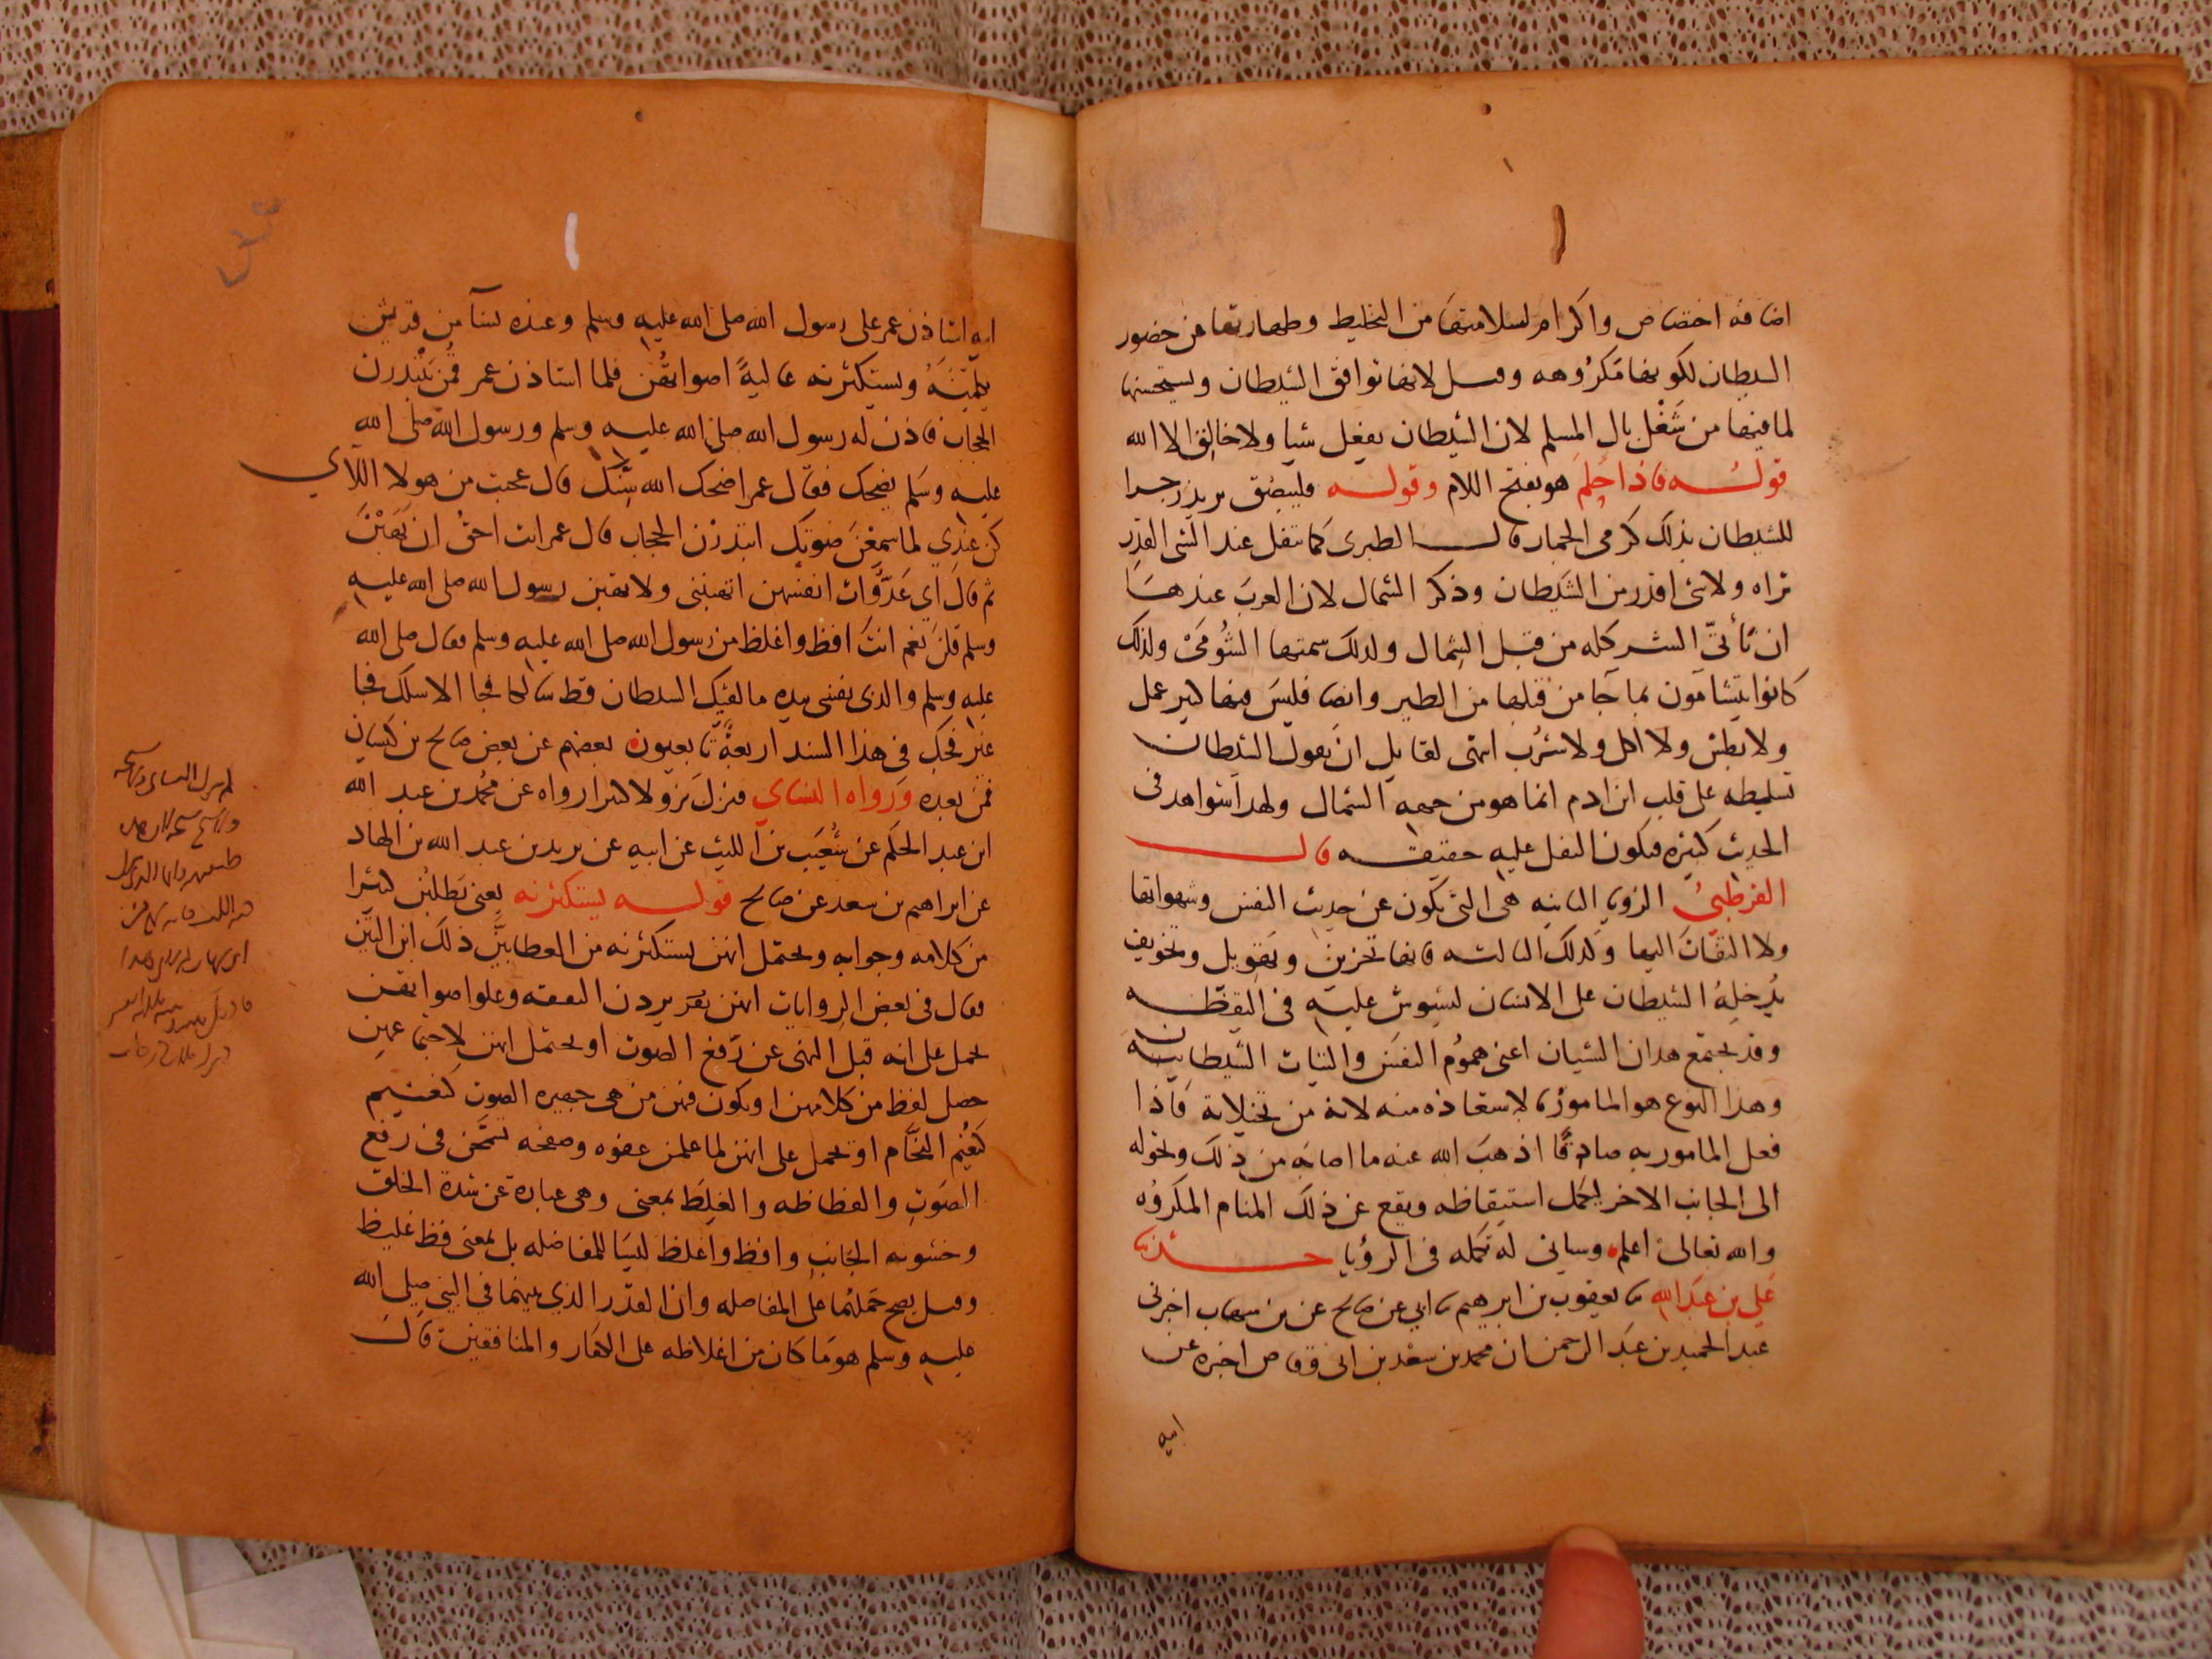 اضافة اختصاص واكرام لسلامتها من التخليط وطهارتها عن حضور
الشيطان لكونها مكروهه وقيل لانها توافق الشيطان ويستحسنها
لما فيها من شغل بال المسلم لان الشيطان يفعل شيا ولا خالق الا الله
قوله فاذا حلم هو بفتح اللام وقوله فليبصق يريد زجرا
للشيطان بذلك كرمى الجمار قال الطبرى كما تتفل عند الشى القذر
تراه ولا شى اقذر من الشيطان وذكر الشمال لان العرب عندها
ان تأتى الشر كله من قبل الشمال ولذلك سمتها الشؤمى ولذلك
كانوا يتشامون بما جا من قبلها من الطير وايضا فليس فيها كبير عمل
ولا بطش ولا اكل ولا شرب انتهى لقايل ان يقول الشيطان
تسليطه على قلب ابن ادم انما هو من جهة الشمال ولهذا شواهد فى
الحديث كثيرة فيكون التفل عليه حقيقة قال
القرطبي الرويا الثانية هى التى تكون عن حديث النفس وشهواتها
ولا التفات اليها وكذلك الثالثه فانها تحزين وتهويل وتخويف
يدخله الشيطان على الانسان ليشوش عليه فى اليقظة
وقد يجتمع هذان الشيان اعنى هموم النفس والنيات الشيطانية
وهذا النوع هو المامور بالاستعاذة منه لانه من تخيلاته فاذا
فعل المامور به صادقا اذهب الله عنه ما اصابه من ذلك وتحوله
الى الجانب الاخر ليكمل استيقاظه ويقع عن ذلك المنام المكروه
والله تعالى اعلم وسياتى له تكمله فى الرؤيا حدثنا
علي بن عبد الله نا يعقوب بن ابراهيم نا ابي عن صالح عن بن شهاب اخبرنى
عبد الحميد بن عبد الرحمن ان محمد بن سعد بن ابى وقاص اخبره عن
ابيه
ابيه استاذن عمر على رسول الله صلى الله عليه وسلم وعنده نسآ من قريش
يكلمنه ويستكثرنه عالية اصواتهن فلما استاذن عمر قمن يبتدرن
الحجاب فاذن له رسول الله صلى الله عليه وسلم ورسول الله صلى الله
عليه وسلم يضحك فقال عمر اضحك الله سنك قال عجبت من هولا اللآي
كن عندي لما سمعن صوتك ابتدرن الحجاب قال عمر انت احق ان يهبن
ثم قال اي عدوات انفسهن اتهبننى ولا تهبن رسول الله صلى الله عليه
وسلم قلن نعم انت افظ واغلظ من رسول الله صلى الله عليه وسلم فقال صلى الله
عليه وسلم والذى نفسى بيده ما لقيك الشيطان قط سالكا فجا الا سلك فجا
غير فجك فى هذا السند اربعة تابعيون بعضهم عن بعض صالح بن كيسان
فمن بعده ورواه النساي فنزل نزولا كثيرا رواه عن محمد بن عبد الله
ابن عبد الحكم عن شعيب بن الليث عن ابيه عن يزيد بن عبد الله بن الهاد
عن ابراهيم بن سعد عن صالح قوله يستكثرنه يعنى يطلبن كثيرا
من كلامه وجوابه ويحتمل انهن يستكثرنه من العطا بين ذلك ابن التين
فقال فى بعض الروايات انهن يردن النفقه وعلو اصواتهن
يحمل على انه قبل النهى عن رفع الصوت او يحتمل انهن لاجتماعهن
حصل لغظ من كلامهن او يكون فيهن من هى جهيرة الصوت كنعيم
كنعيم النحام او يحمل على انهن لما علمن عفوه وصفحه تسمحن فى رفع
الصوت والفظاظه والغلظ بمعنى وهى عبارة عن شدة الخلق
وخشونه الجانب وافظ واغلظ ليسا للمفاضله بل بمعنى فظ غليظ
وقيل يصح حملهما على المفاضله وان القدر الذي بينهما في النبي صلى الله
عليه وسلم هو ما كان من اغلاظه على الكفار والمنافقين قال